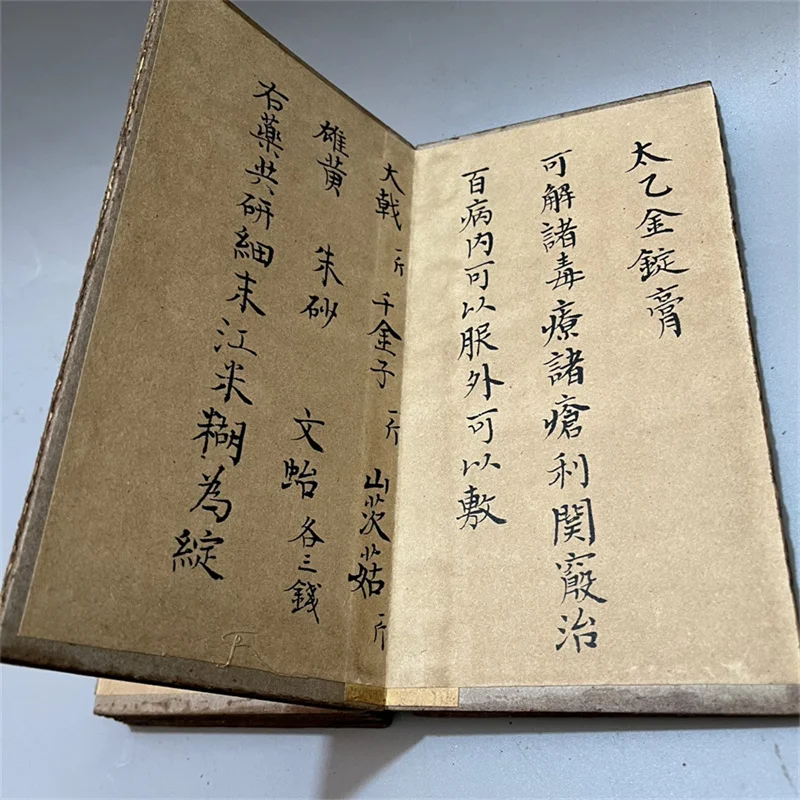 太乙金錠膏
可解諸毒療諸瘡利関竅治
百病内可以服外可以敷
大戟 一斤 千金子 一斤 山茨菇 一斤
雄黄 朱砂 文蛤 各三錢
右藥共研細末江米糊為綻